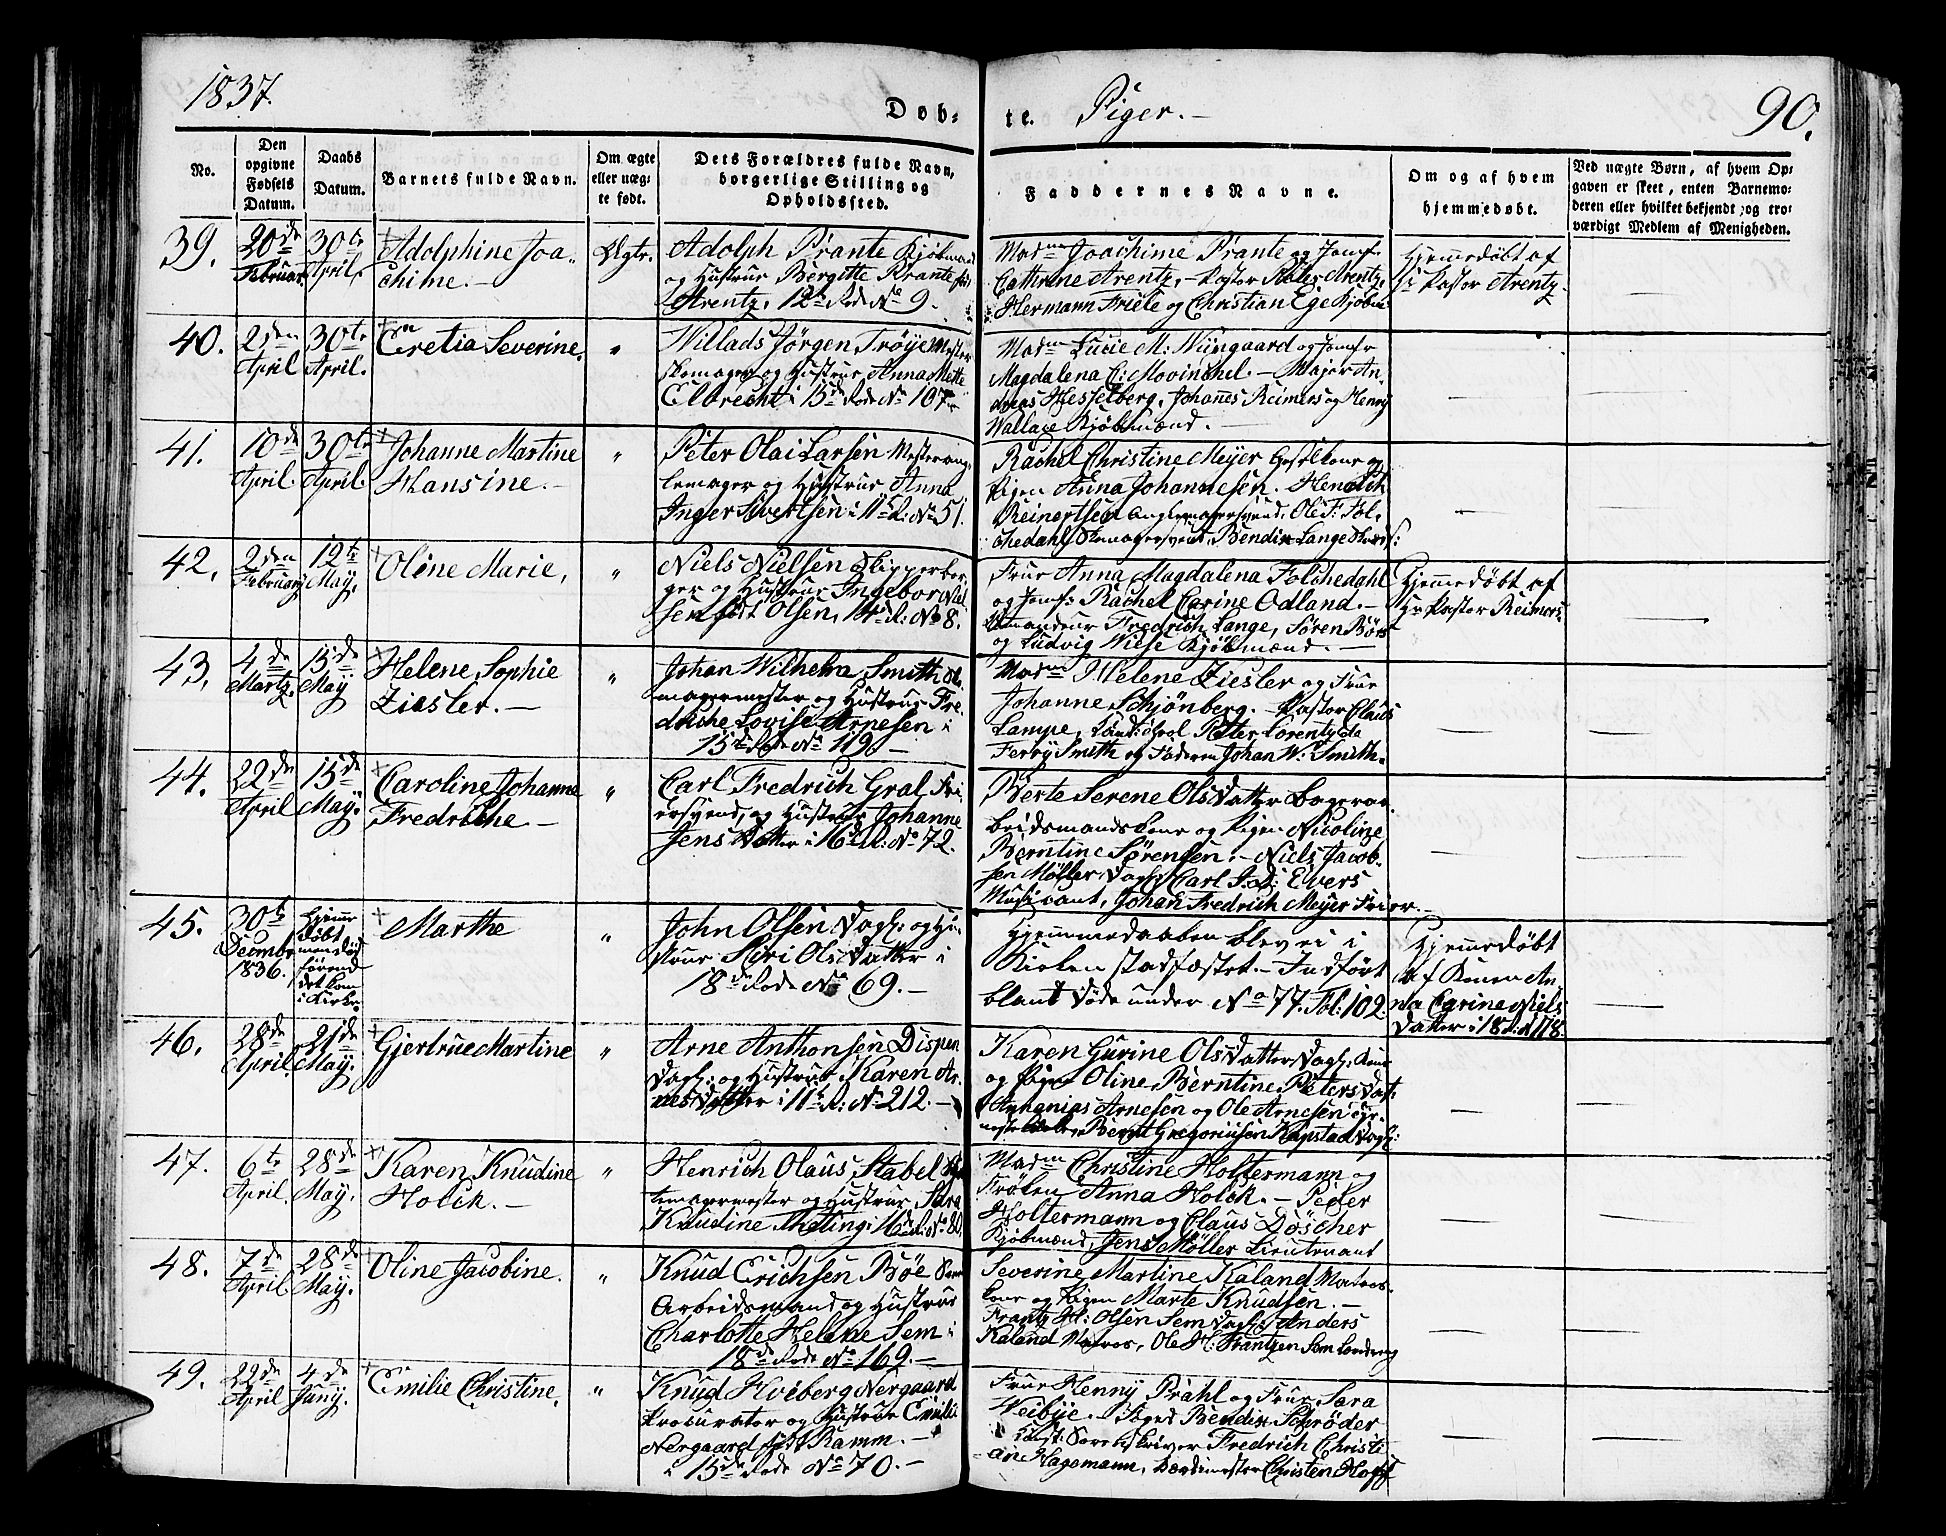 1837.
Døb-
te.
Piger.-
90.
No.
Den opgivne Fødsels Datum.
Daabs Datum.
Barnets fulde Navn.
Om ægte eller uæg-te født.
Dets Forældres fulde Navn, borgerlige Stilling og Opholdssted.
Faddernes Navne.
Om og af hvem hjemmedøbt.
Ved uægte Børn, af hvem Op-
gaven er skeet, enten Barnemo-
deren eller hvilket bekjendt, og tro-
værdigt Medlem af Menigheden.
39.
20de
Februar
30te
April.
Adolphine Joa-
chime.-
Ægte.
Adolph Prante Kjøbmand
og Hustrue Bergitte Prante fød
Arentz, 12te Rode No 9.
Madme Joachime Prante og Jomfr
Cathrine Arentz,
Hermann Friele og Christian Ege Kjøbm
Hjemmedøbt af
Hr Pastor Arentz.
40.
2den
April
30te
April.
Gretia Severine.
"
Willads Jørgen Trøye Mester
skomager og Hustrue Anna Mette
Elbrecht i 15de Rode No 107.
Madme Lucie M: Wiingaard og Jomfr
Magdalena C: Movinchel. - Major An-
dreas Hesselberg, Johannes Reimers og Henry
Wallace Kjøbmænd.-
41.
10de
April.
30te
April.
Johanne Martine
Hansine.-
"
Peter Olai Larsen
og Hustrue Anna
Inger Sivertsen i 11te R: No 51.
Rachel Christine Meyer
Pigen Anna Johannesen. Henrich
Reinertsen
Bendix Lange
42.
2den
Februar
12te
May.
Oline Marie,
"
Niels Nielsen
og Hustrue Ingebor Niel-
sen født Olsen, No 8.
Frue Anna Magdalena Folchedahl
og Jomf: Rachel Carine Odland.-
Fredrich Lange, Søren Børs
og Ludvig Wiese Kjøbmænd.-
Hjemmedøbt af
Hr Pastor Reimers
43.
4de
Martz.
15de
May
Helene Sophie
Ziesler.-
"
Johan Wilhelm Smith
magermester og Hustrue Fre-
driche Lovise Arnesen i
15de Rode No 119.-
Madme Helene Ziesler og Frue
Johanne Schjønberg. - Pastor Claus
Lampe, Peter Lorentz da
Ferry Smith og Faderen Johan W: Smith.
44.
22de
April
15de
May.
Caroline Johanne
Fredriche-
"
Carl Fredrich Gral
og Hustrue Johanne
Jens Datter i 16de R: No 72.
Berte Serene Ols Datter
og Pigen Nicoline
Berntine Sørensen.- Niels Jacob-
sen Møller, Carl Evers
Musicant, Johan Fredrich Meyer
45.
30te
Decembr
1836.
Hjemme
døbt
men død
førend
det kom
i Kirke.
Marthe
"
John Olsen Dagl: og Hu-
strue Siri Ols Datter i
18de Rode No 69.-
Hjemmedaaben blev ei i
Kirken stadfæstet.- Indført
blant Døde under No 77. Fol: 102.
Hjemmedøbt
af Konen An-
na Carine Niels
Datter i 18 R: N 118.
46.
28de
April.
21de
May.
Gjertrue Martine
"
Arne Anthonsen Dispen
Dagl: og Hustrue Karen Ar-
nesdatter i 11te R: No 212.-
Karen Gurine Ols Datter Dagl: Kone
og Pigen Oline Berntine Peters Dat:
Ananias Arnesen og Ole Arnesen
Berent Gregoriusen Dagl:
47.
6te
April.
28de
May.
Karen Knudine
Holck.-
"
Henrich Olaus Stabel
magermester og Hustrue Sara
Knudine
Madme Christine Holtermann og
Frøken Anna Holck.- Peder
Holtermann og Claus Döscher
Kjøbmænd, Jens Møller Lieutenant
48.
7de
April
28de
May.
Oline Jacobine.
"
Knud Erichsen Bøe
Arbeidsmand og Hustrue
Charlotte Helene Sem i
18de Rode No 169.-
Severine Martine Kaland Matros-
kone og Pigen Marte Knudsen.-
Frantz H: Olsen Sem Dagl: Anders
Kaland Matros, Ole H: Frantzen Sem
49.
22de
April
4de
Juny.
Emilie Christine,
"
Knud Hviberg Nergaard
Procurator og Hustrue Emilie
Nergaard født Ramm.-
i 15de Rode No 70.-
Frue Henny Prahl og Frue Sara
Weibye. Bendix Schrøder
Sorenskriver Fredrich Christi-
an Hagemann, Christen Hoff